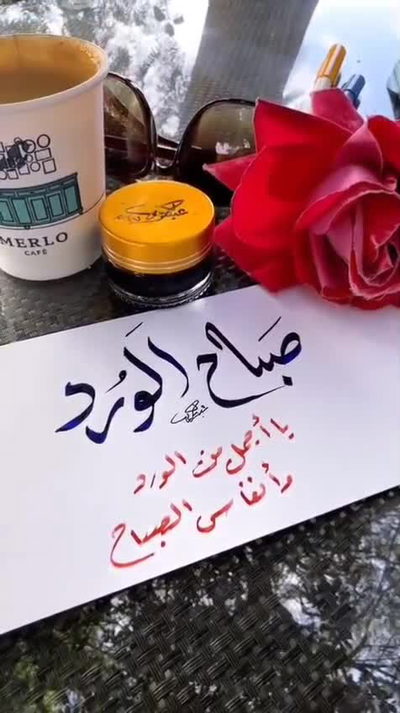 MERLO
CAFÉ
صَبَاح الوَرُد
يا أجمل من الورد
وأنفاس الصباح